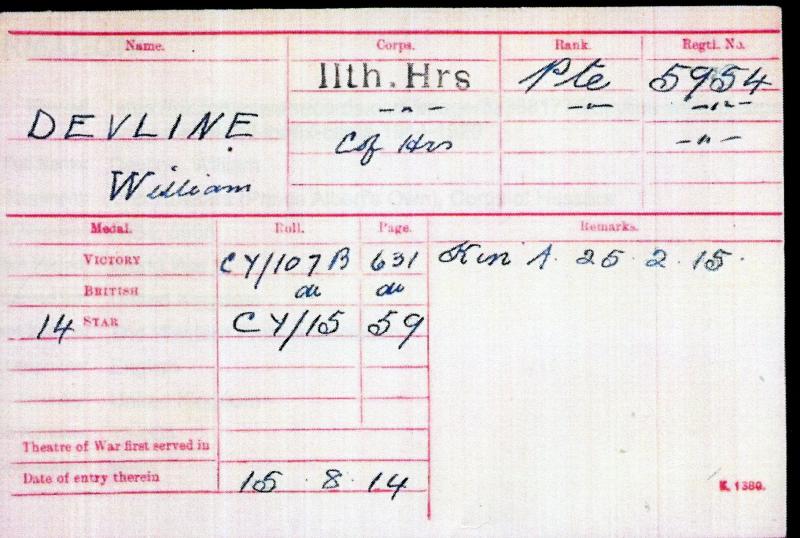 Name. Corps. Rank. Regtl. No.
11th. Hrs Pte 5954
DEVLINE -"- -"- -"-
C of Hrs -"-
William
Medal. Roll. Page. Remarks.
VICTORY CY/107B 631 K in A. 25. 2. 15.
BRITISH do do
14 STAR CY/15 59
Theatre of War first served in
Date of entry therein 15. 8. 14
K. 1380.